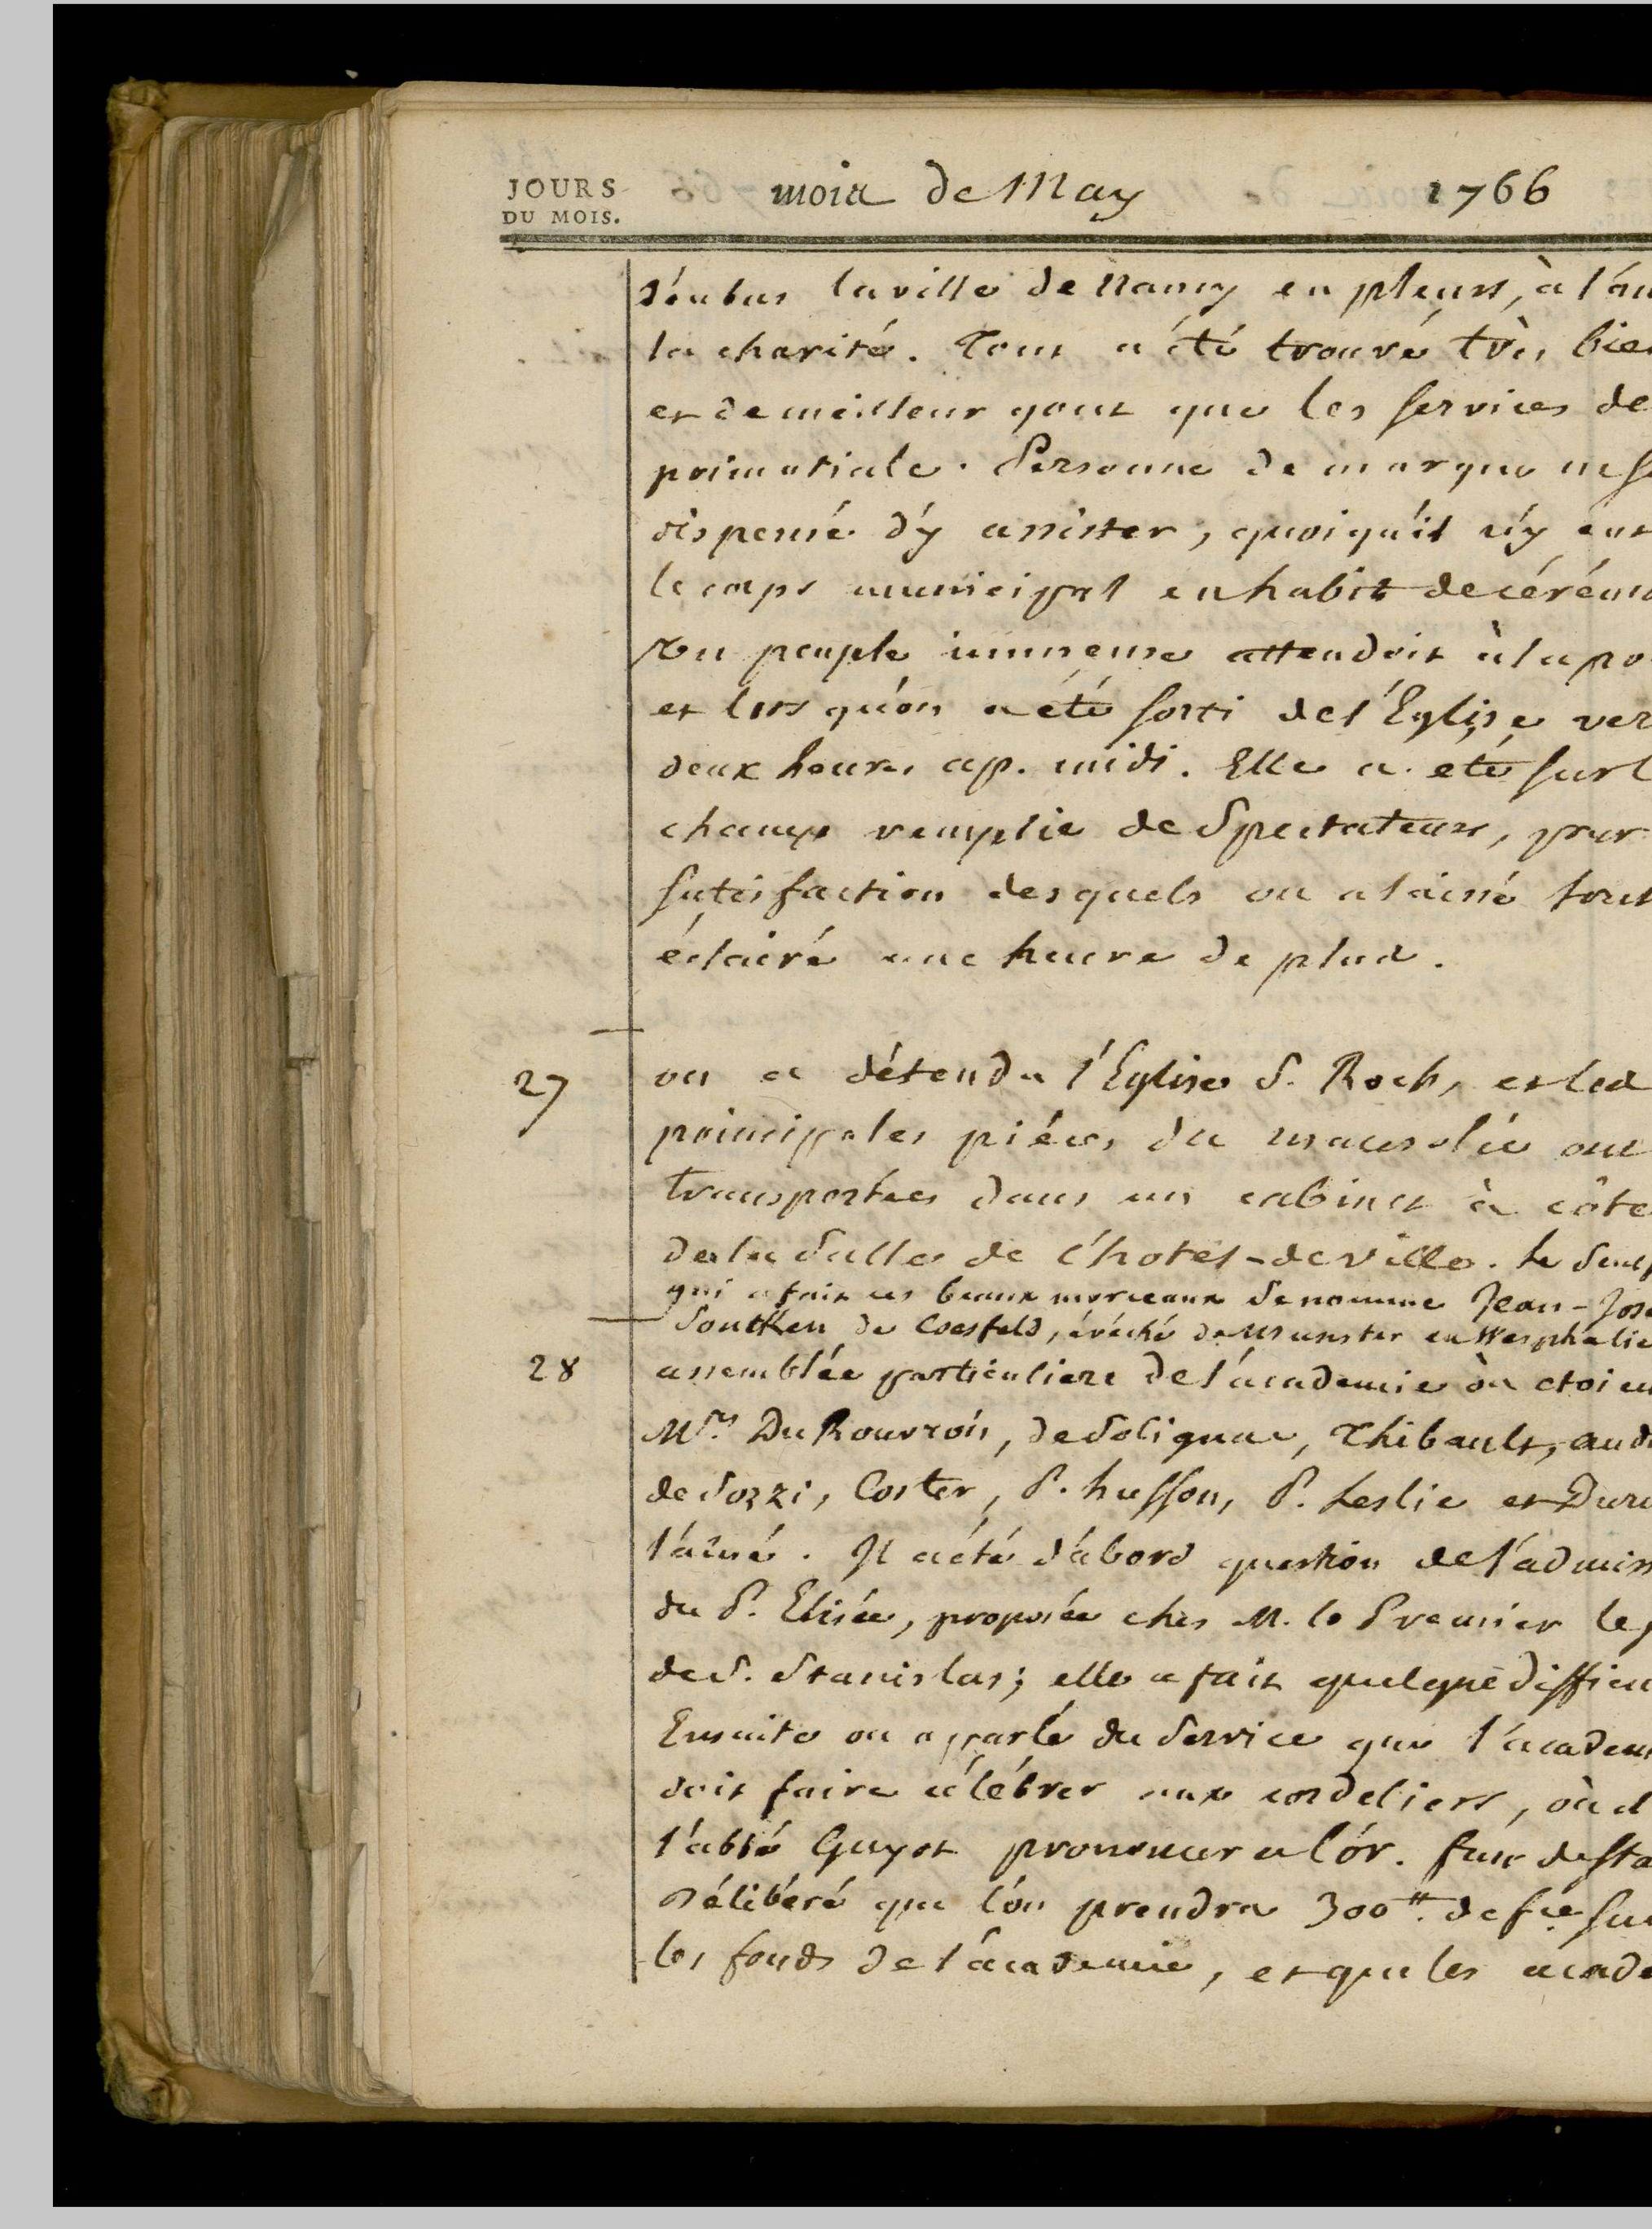 JOURS DU MOIS. mois de May 1766
d'enbas la ville de Nancy en pleurs, à l'au
la charité. Tout a été trouvé très bie
et de meilleur gout que les services de
primatiale. Personne de marque ne s
dispensé d'y assister, quoiqu'il n'y eut
le corps municipal en habit de cérémo
un peuple immense attendoit à la po
et lors qu'on a été sorti de l'Eglise ver
deux heures ap. midi. Elle a été sur l
champs remplie de Spectateurs, pour
satisfaction des quels on a laissé tout
éclairé une heure de plus.
27 on a détendu l'Eglise S. Roch, et les
principales piéces du mausolée ont
transportées dans un cabinet à côté
de la Salle de l'hotel-de ville. le Scul
qui a fait ces beaux morceaux se nomme Jean-Jose
Soutken de Coesfeld, évéché de Munster en Wesphalie
28 assemblée particuliere de l'académie où etoien
Mrs. Du Rouvrois, de Solignac, Thibault, and
de Sozzi, Coster, P. husson, P. Leslie et Duri
l'aîné. Il a été d'abord question de l'admiss
du P. Elisée, proposée chés M. le Premier le
de S. Stanislas; elle a fait quelque difficu
Ensuite on a parlé du Service que l'académ
doit faire célébrer aux cordeliers, où d
l'abbé Guyot prononcera l'or. fun. de Sta
Délibéré que l'on prendra 300tt. de fce sur
les fonds de l'académie, et que les acade